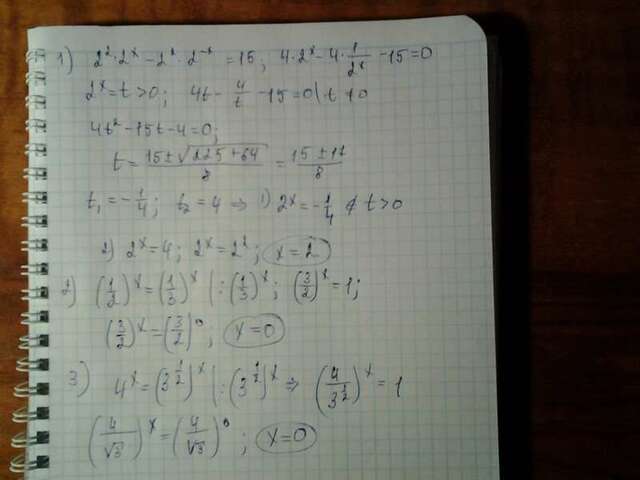 1) 2²·2ˣ - 2²·2⁻ˣ = 15; 4·2ˣ - 4·1/2ˣ - 15 = 0
2ˣ = t > 0; 4t - 4/t - 15 = 0 |·t ≠ 0
4t² - 15t - 4 = 0;
t = (15 ± √(225 + 64))/8 = (15 ± 17)/8
t₁ = -1/4; t₂ = 4 ⇒ 1) 2ˣ = -1/4 ∉ t > 0
2) 2ˣ = 4; 2ˣ = 2²; x = 2
2) (1/2)ˣ = (1/3)ˣ |:(1/3)ˣ; (3/2)ˣ = 1;
(3/2)ˣ = (3/2)⁰; x = 0
3) 4ˣ = (3^(1/2))ˣ |:(3^(1/2))ˣ ⇒ (4/3^(1/2))ˣ = 1
(4/√3)ˣ = (4/√3)⁰; x = 0